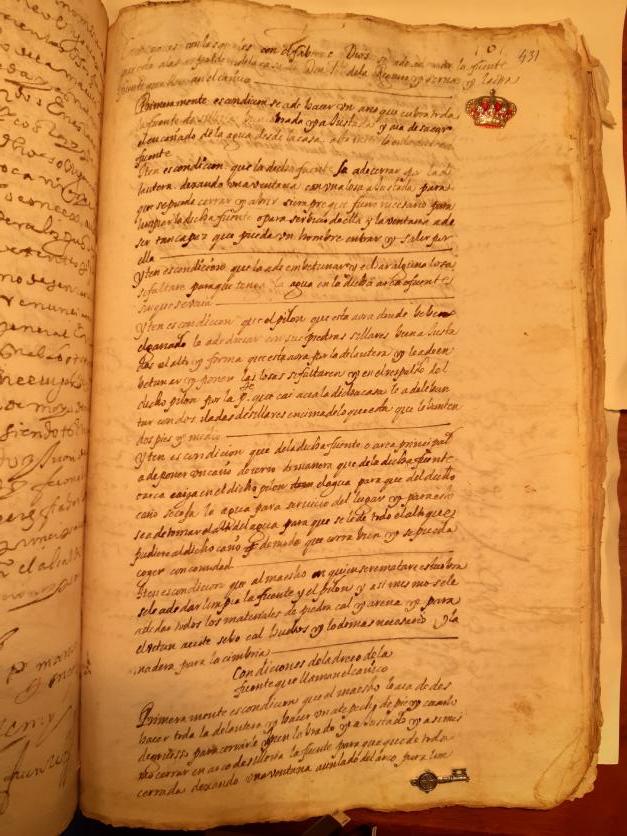 431
condiciones con las quales con el fabor de Dios se ade aderezar la fuente
Primeramente es condicion se ade hacer un arco que cubra toda
la frente de la labrada y a justada y a ia de sacar
el encañado de la agua desde la casa
fuente
Yten es condicion que la dicha fuente se a de cerrar por la de
lantera dexando una ventana con una losa a Justada para
que se pueda cerrar y abrir siempre que fuere necesario para
limpiar la dicha fuente o para serbicio de ella y la ventana a de
ser tan capaz que pueda un hombre entrar y salir por
ella
Yten es condicion que la ade embetunar y echar alguna losa
si faltare para que tenga la agua en la dicha arca o fuente
sin que se vaia
Yten es condicion que el pilon que esta aora donde beben
el ganado lo a de sacar con sus piedras sillares bien a Justa
das el alto y forma que esta aora por la delantera y lo a de en
betunar y poner las losas si faltaren y en el respaldo del
dicho pilon por la p.e que cai acia la dicha casa le a de leban
tar con dos iladas de sillares encima de lo que esta que lebanten
dos pies y medio
Yten es condicion que de la dicha fuente o arca principal
a de poner un caño de yerro de manera que de la dicha fuente
o arca caiga en el dicho pilon el agua para que del dicho
caño se coja la agua para serbicio del lugar y para esto
se a de tomar el alto del agua para que se le de todo el alto que se
pudiere al dicho caño de modo que corra bien y se pueda
coger con comodidad
Yten es condicion que al maestro en quien se rematare esta obra
se le a de dar limpia la fuente y el pilon y asi mesmo se le
a de dar todos los materiales de piedra cal y arena y para
el betun aceite sebo cal huebos y lo demas necesario y la
madera para la cimbria
Condiciones del adrezo de la
fuente que llaman el caño
Primeramente es condicion que el maestro la a de des
hacer toda la delantera y hacer un de pie y quarto
de grueso para cerrarla bien labrado y a justado y asimes
mo cerrar en arco de silleria la fuente para que quede toda
cerrada dexando una ventana a un lado del arco para lim